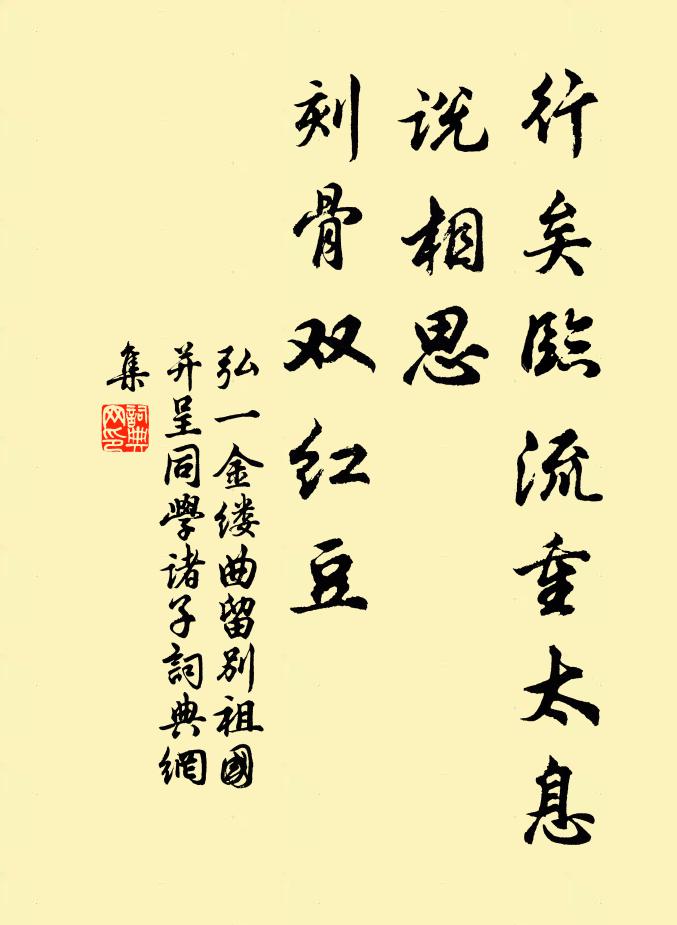 行矣臨流重太息
说相思
刻骨双红豆
弘一金缕曲留别祖國
并呈同學诸子詞典網
集
詞典
网印